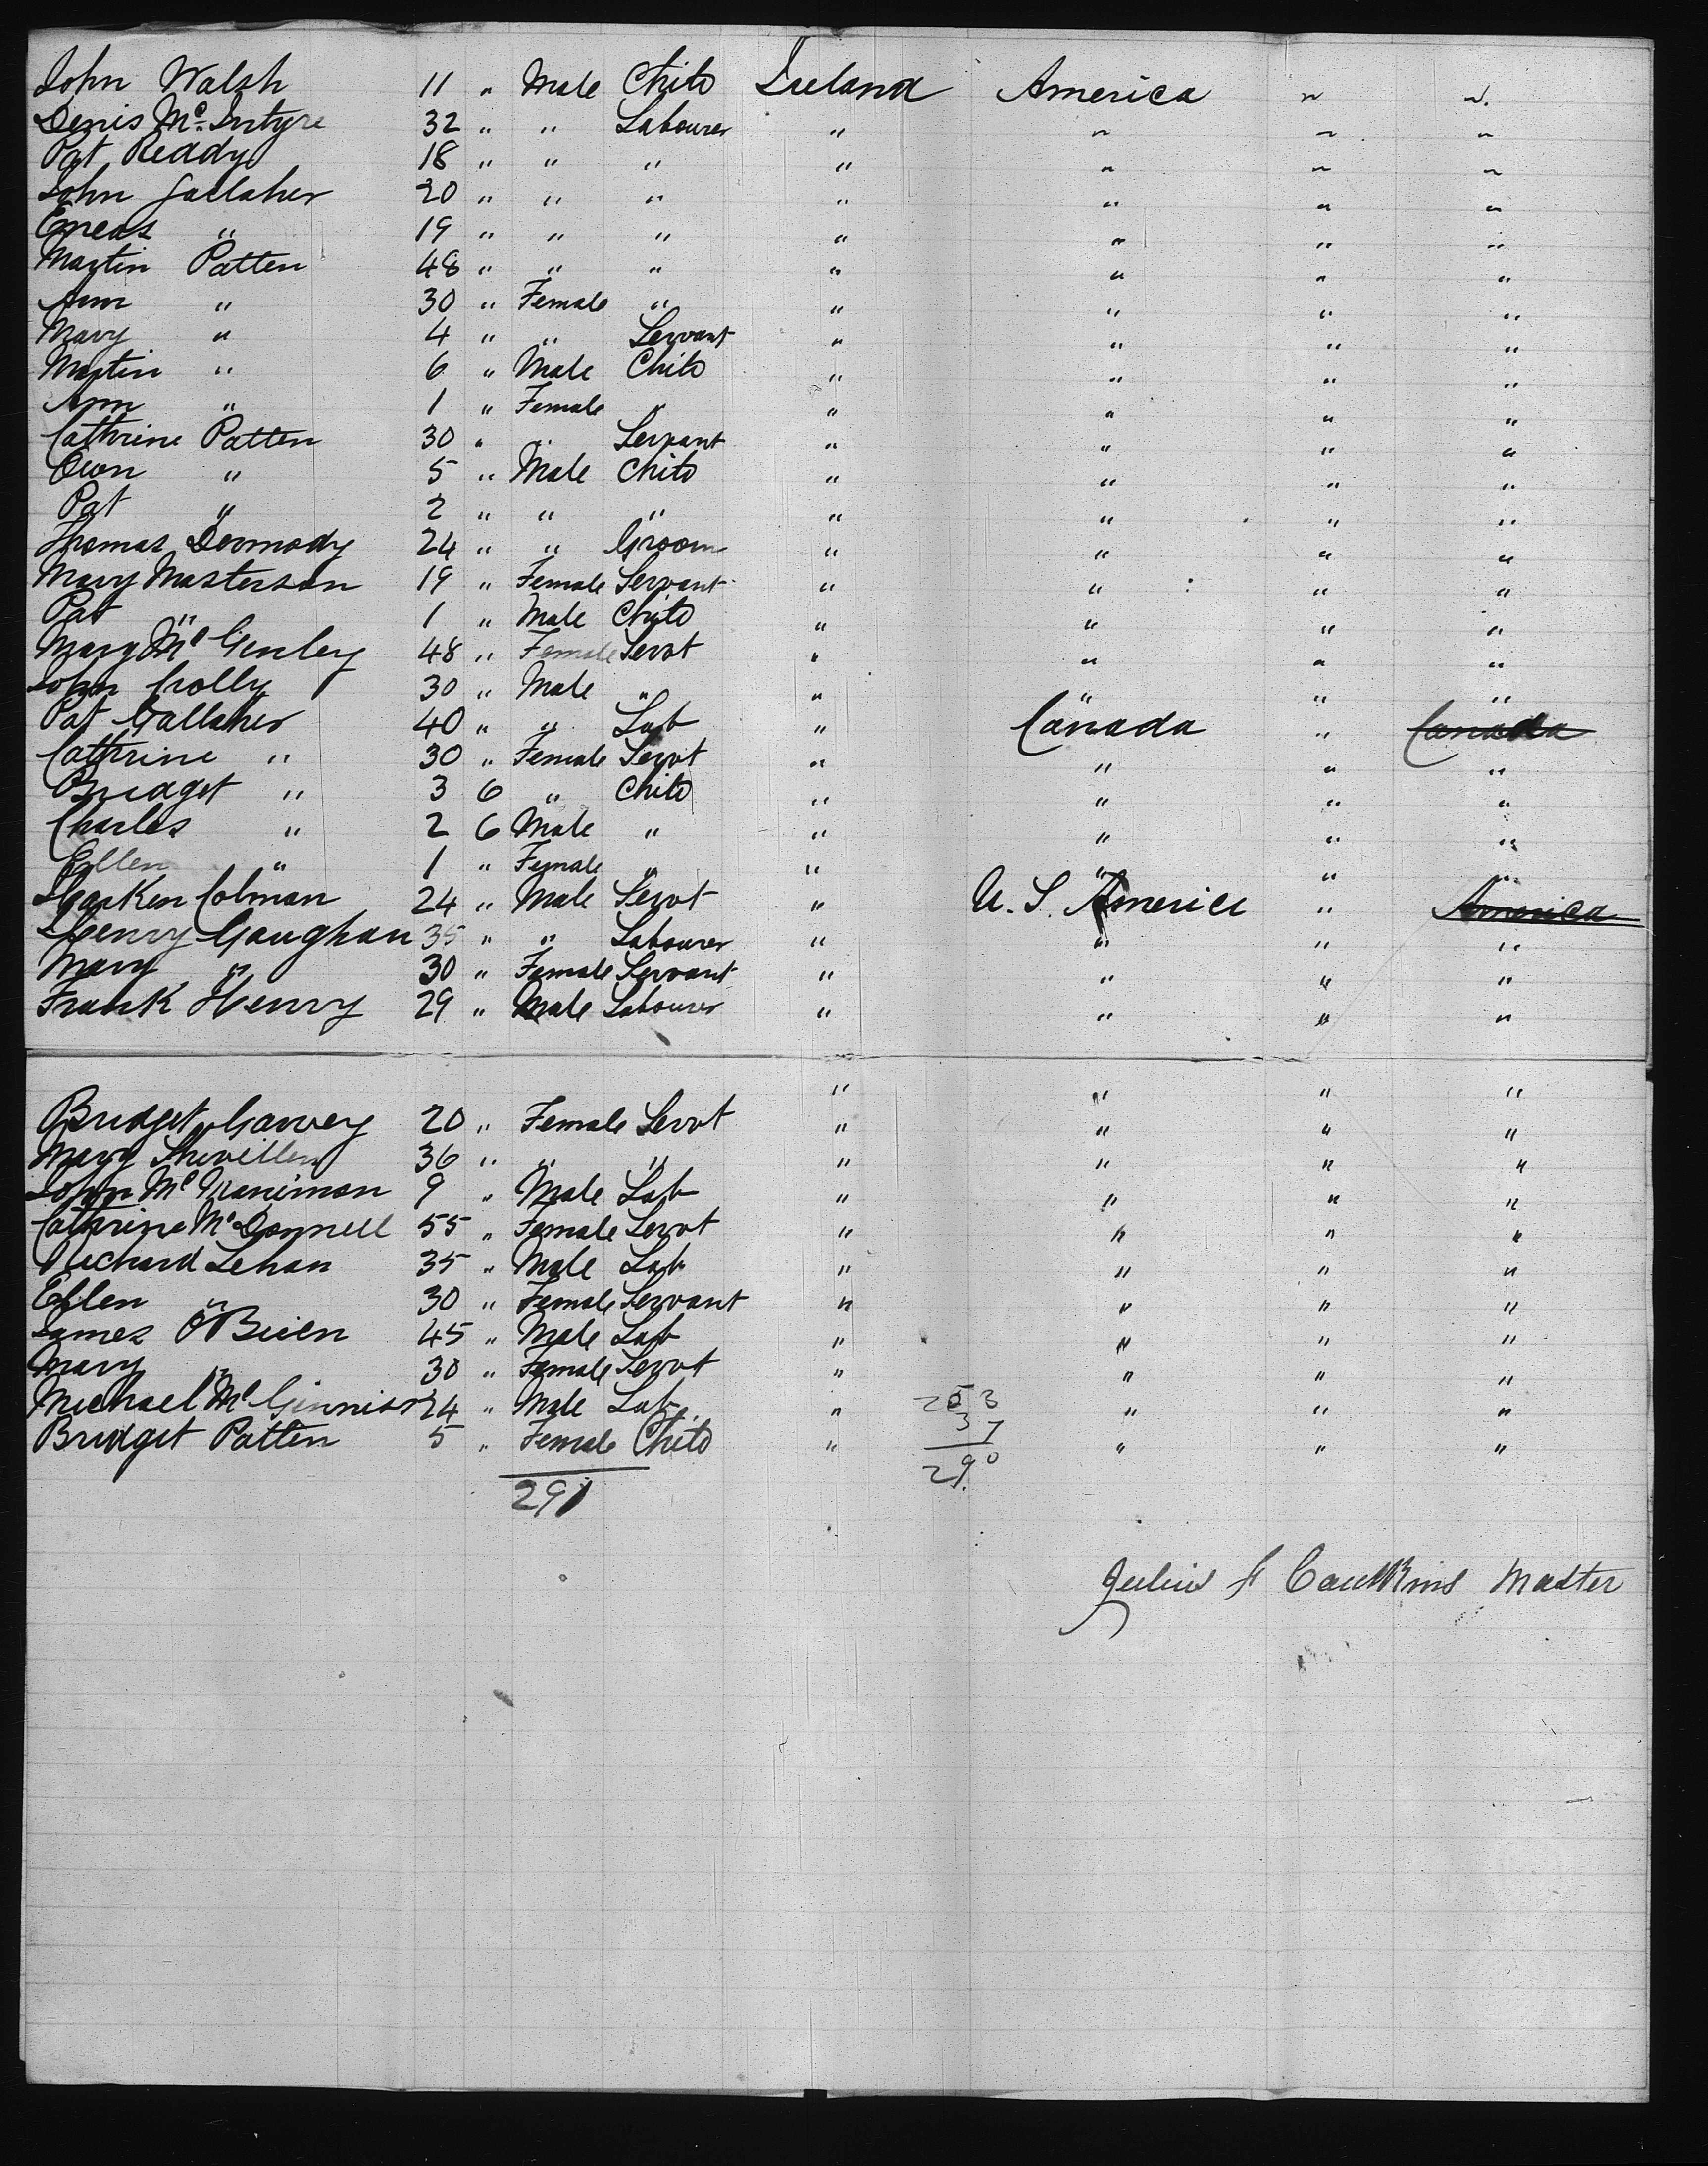 John Walsh 11 " Male Child Ireland America " "
Denis Mc Intyre 32 " " Labourer " " " "
Pat Reddy 18 " " " " " " "
John Gallaher 20 " " " " " " "
Eneas " 19 " " " " " " "
Martin Patten 48 " " " " " " "
Ann " 30 " Female " " " " "
Mary " 4 " " Servant " " " "
Martin " 6 " Male Child " " " "
Ann " 1 " Female " " " " "
Cathrine Patten 30 " " Servant " " " "
Own " 5 " Male Child " " " "
Pat " 2 " " " " " " "
Thomas Dermody 24 " " Groom " " " "
Mary Masterson 19 " Female Servant " " " "
Pat " 1 " Male Child " " " "
Mary Mc Genley 48 " Female Servt " " " "
John Crolly 30 " Male " " " " "
Pat Gallaher 40 " " Lab " Canada " Canada
Cathrine " 30 " Female Servt " " " "
Bridget " 3 6 " Child " " " "
Charles " 2 6 Male " " " " "
Ellen " 1 " Female " " " " "
Colman 24 " Male Servt " U.S. America " America
Henry Gaughan 35 " " Labourer " " " "
Mary " 30 " Female Servant " " " "
Frank Henry 29 " Male Labourer " " " "
" " " "
Bridget Garvey 20 " Female Servt " " " "
Mary 36 " " " " " " "
John Mc 9 " Male Lab " " " "
Cathrine Mc Donnell 55 " Female Servt " " " "
Richard Lehan 35 " Male Lab " " " "
Ellen " 30 " Female Servant " " " "
James O'Brien 45 " Male Lab " " " "
Mary " 30 " Female Servt " " " "
Michael Mc Ginnis 24 " Male Lab " 253 " " "
Bridget Patten 5 " Female Child " 37 " " "
291 290
Master